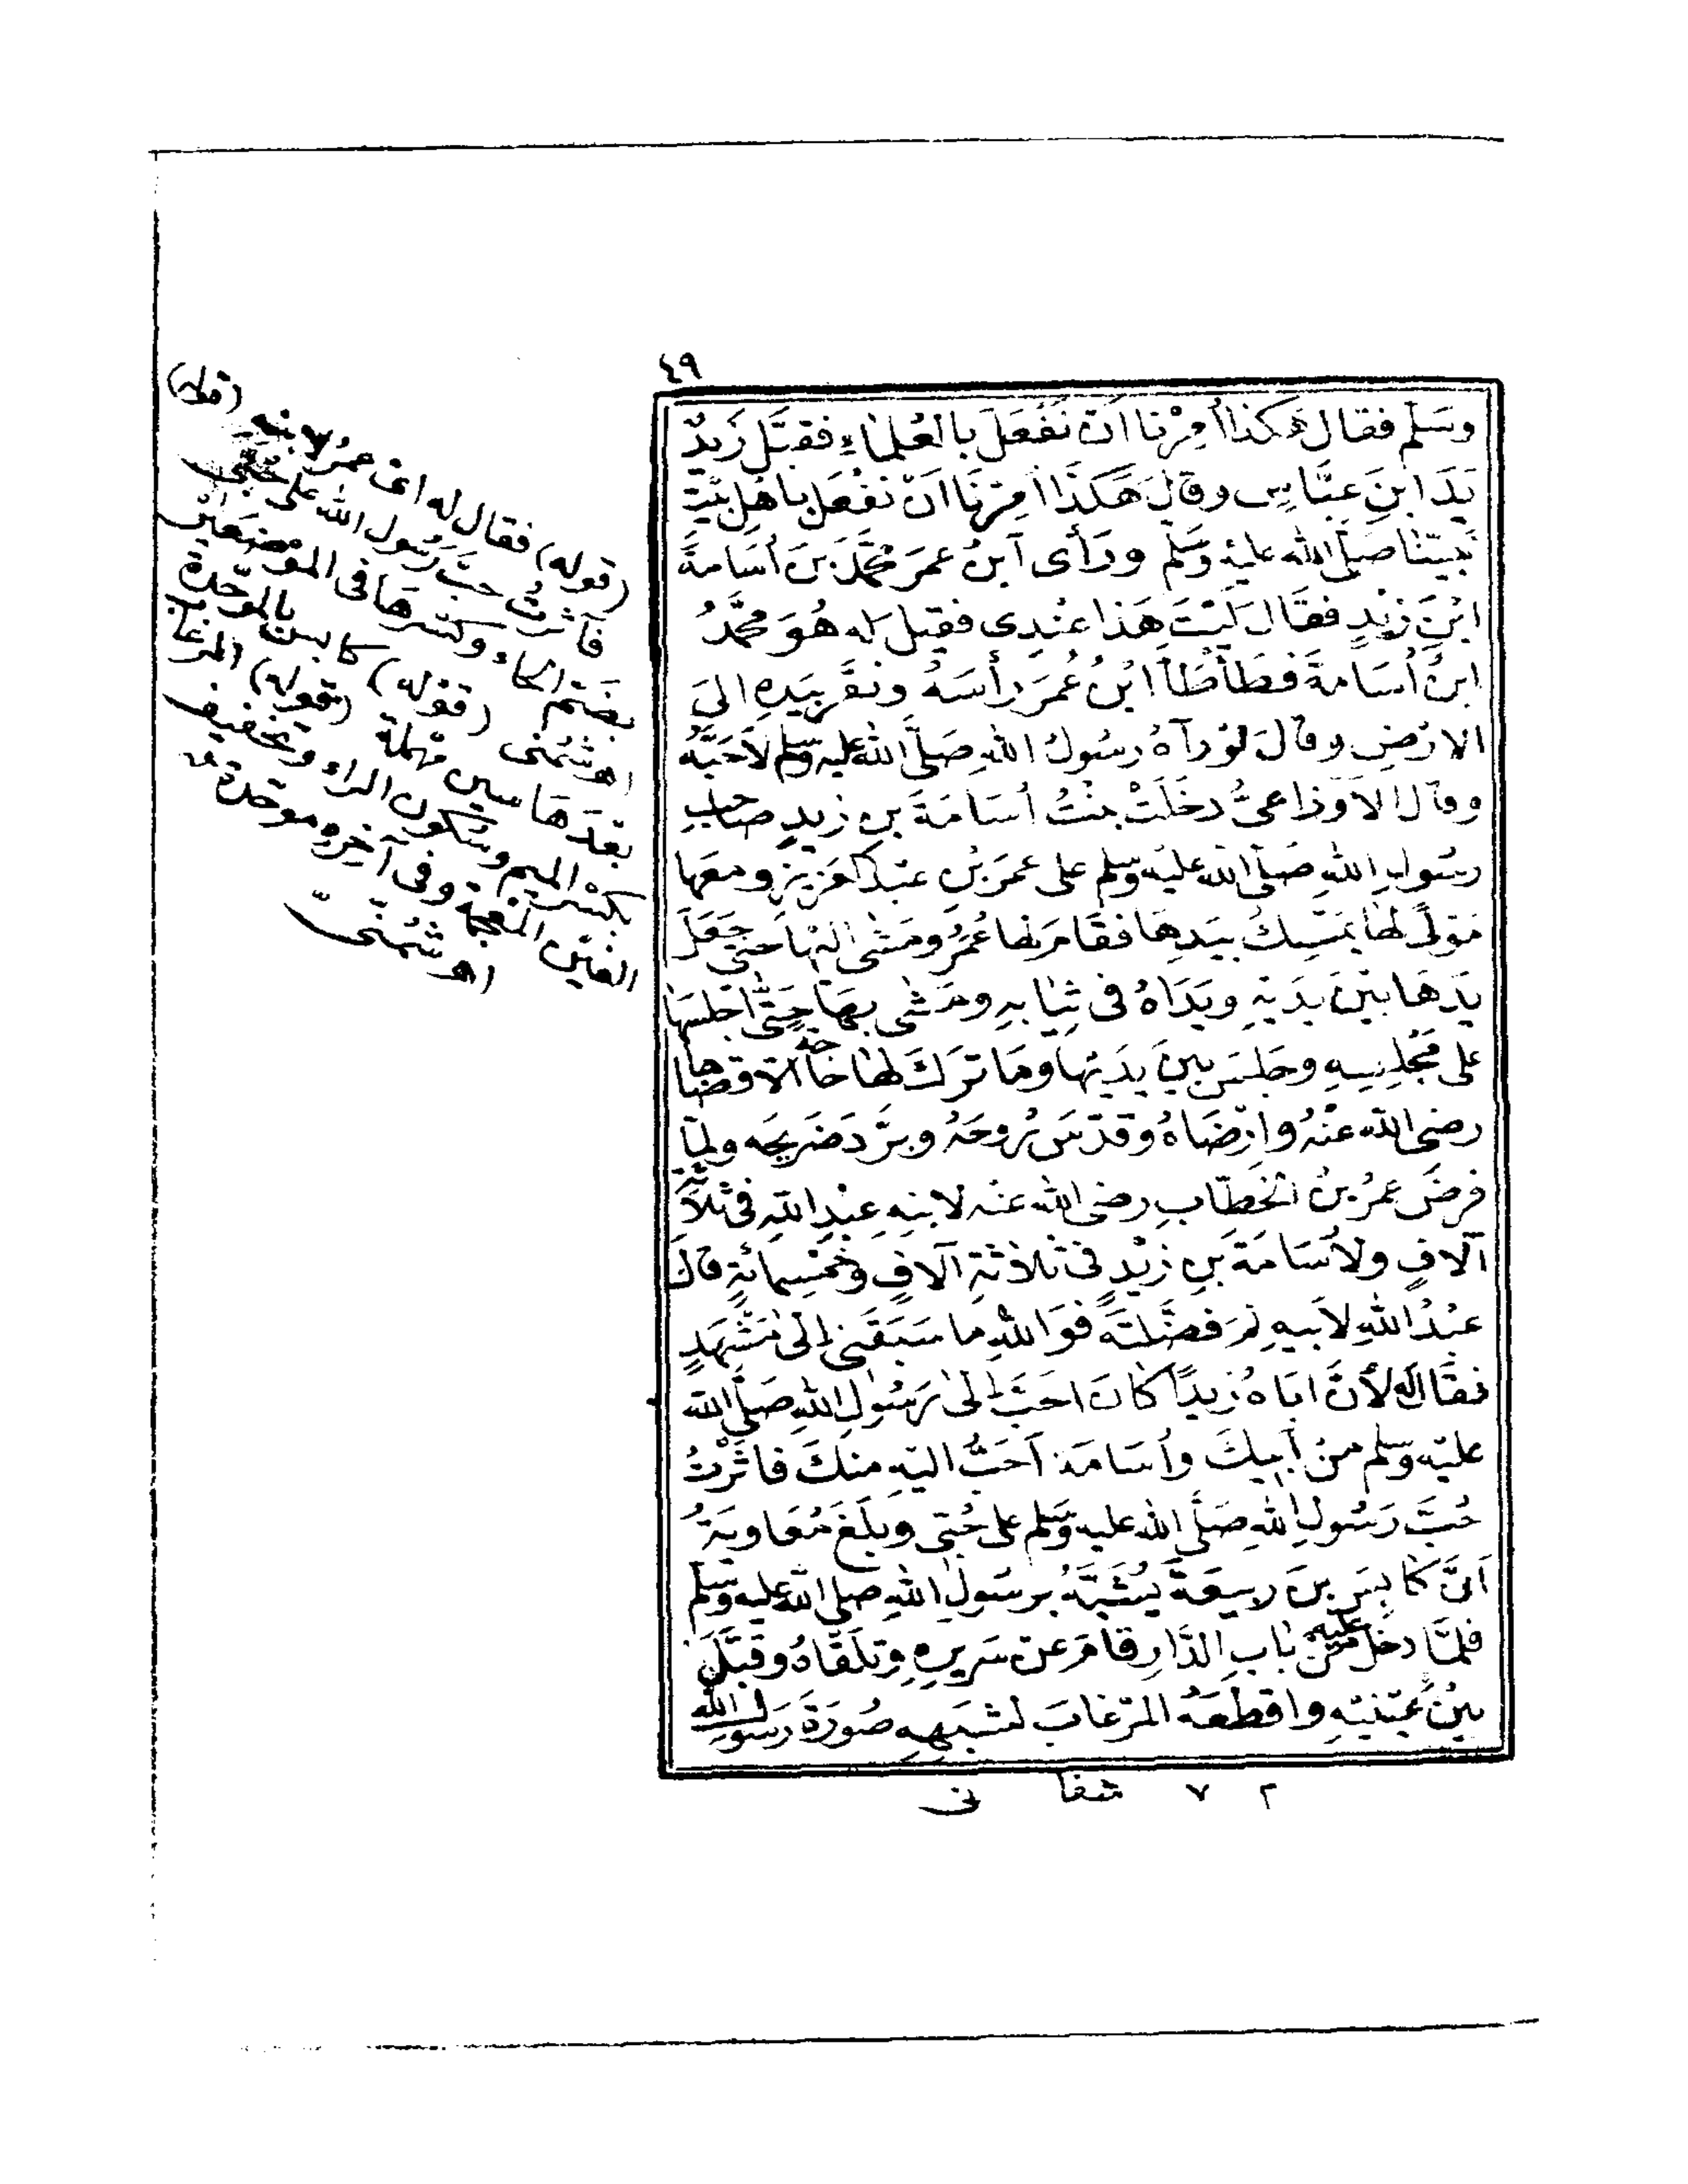 ٤٩
وَسَلَّم فقال هٰكذا أُمِرْنا اَنْ نَفْعَلَ بالعُلَماءِ فَقَبَّلَ زَيْدٌ
يَدَ ابْنِ عَبَّاسٍ وقالَ هَكَذَا اُمِرْنَا اَنْ نَفْعَلَ بِاَهْلِ بَيْتِ
نَبِيِّنَا صَلَّى الله عليهِ وَسَلَّم ورَأى اَبْنُ عمرَ مُحَمَّدَ بْنَ اُسَامَةَ
ابْنِ زَيْدٍ فقالَ لَيْتَ هٰذا عَبْدِى فقيلَ له هُوَ مُحَمَّدُ
ابنُ اُسَامَةَ فَطَأْطَأَ ابْنُ عُمَرَ رأسَهُ ونَقَرَ بِيَدِهِ اِلىَ
الارْضِ وقالَ لَوْ رَآهُ رسُولُ اللهِ صَلَّى اللهُ عليه وسلم لَاَحَبَّهُ
وقال الاَوْزاعىُّ دخَلَتْ بِنْتُ اُسَامَةَ بنِ زيدٍ صاحبِ
رسُولِ اللهِ صَلّى الله عليهِ وسلم على عمرَ بْنِ عبد العَزيزِ ومعَها
مَوْلًى لهَا يُمْسِكُ بِيَدِهَا فَقَامَ لها عُمَرُ ومَشٰى اِلَيْهَا حتى جَعَلَ
يَدَهَا بَيْنَ يَدَيْهِ ويَدَاهُ فى ثِيَابِهِ ومَشٰى بِهَا حَتّٰى اَجْلَسَهَا
على مَجْلِسِهِ وجَلَسَ بينَ يَدَيْهَا ومَا تَرَكَ لهَا حَاجَةً اِلّا قضاها
رضى الله عَنْهُ واَرْضَاهُ وقَدَّسَ رُوحَهُ وبَرَّدَ ضَرِيحَه ولمّا
فرضَ عمرُ بنُ الخطّابِ رضى الله عنه لابنِهِ عبْدِ اللهِ فى ثلاثَةِ
آلافٍ ولاُسَامَةَ بنِ زيْدٍ فى ثلاثةِ آلافٍ وخمْسِمائةٍ قالَ
عبْدُ اللهِ لاَبيهِ لِمَ فضَّلْتَه فَوَاللهِ ما سَبَقَنى اِلىٰ مَشْهَدٍ
فقال له لأنَّ اَبَاهُ زيدًا كانَ اَحَبَّ اِلىٰ رَسُولِ اللهِ صَلّى الله
عليهِ وسلم مِنْ اَبيكَ واُسَامَةَ اَحَبُّ اليْهِ منكَ فآثَرْتُ
حُبَّ رَسُولِ اللهِ صَلَّى الله عليه وَسَلّم على حُبّى وبَلَغَ مُعَاويَةَ
اَنَّ كَابِسَ بنَ رَبيعَةَ يُشْبِهُ بِرَسُولِ اللهِ صلى الله عليه وَسَلّم
فلمَّا دخَلَ عليهِ مِنْ بابِ الدَّارِ قامَ عَنْ سَريرِهِ وتَلَقّاهُ وقَبَّلَ
بينَ عَيْنَيْهِ واقطَعَهُ المِرْغابَ لشَبَهِهِ صُورَةَ رَسُولِ الله
٢ ٧ شفا نى
(قوله)
(قوله) فقال له اى عمرُ لابنِه
فآثرتُ حبَّ رَسُول الله على حُبّى
بضَمّ الحاء وكسْرهَا فى الموْضعَيْن
اهـ شُمُنى (قوله) كابس بالموَحّدة
بعْدَهَا سين مُهملة (قوله) المرغاب
بكسْر الميم وسُكون الراء وتخفيف
الغَيْن المعْجمة وفى آخره مُوَحّدة
اهـ شُمُنّى